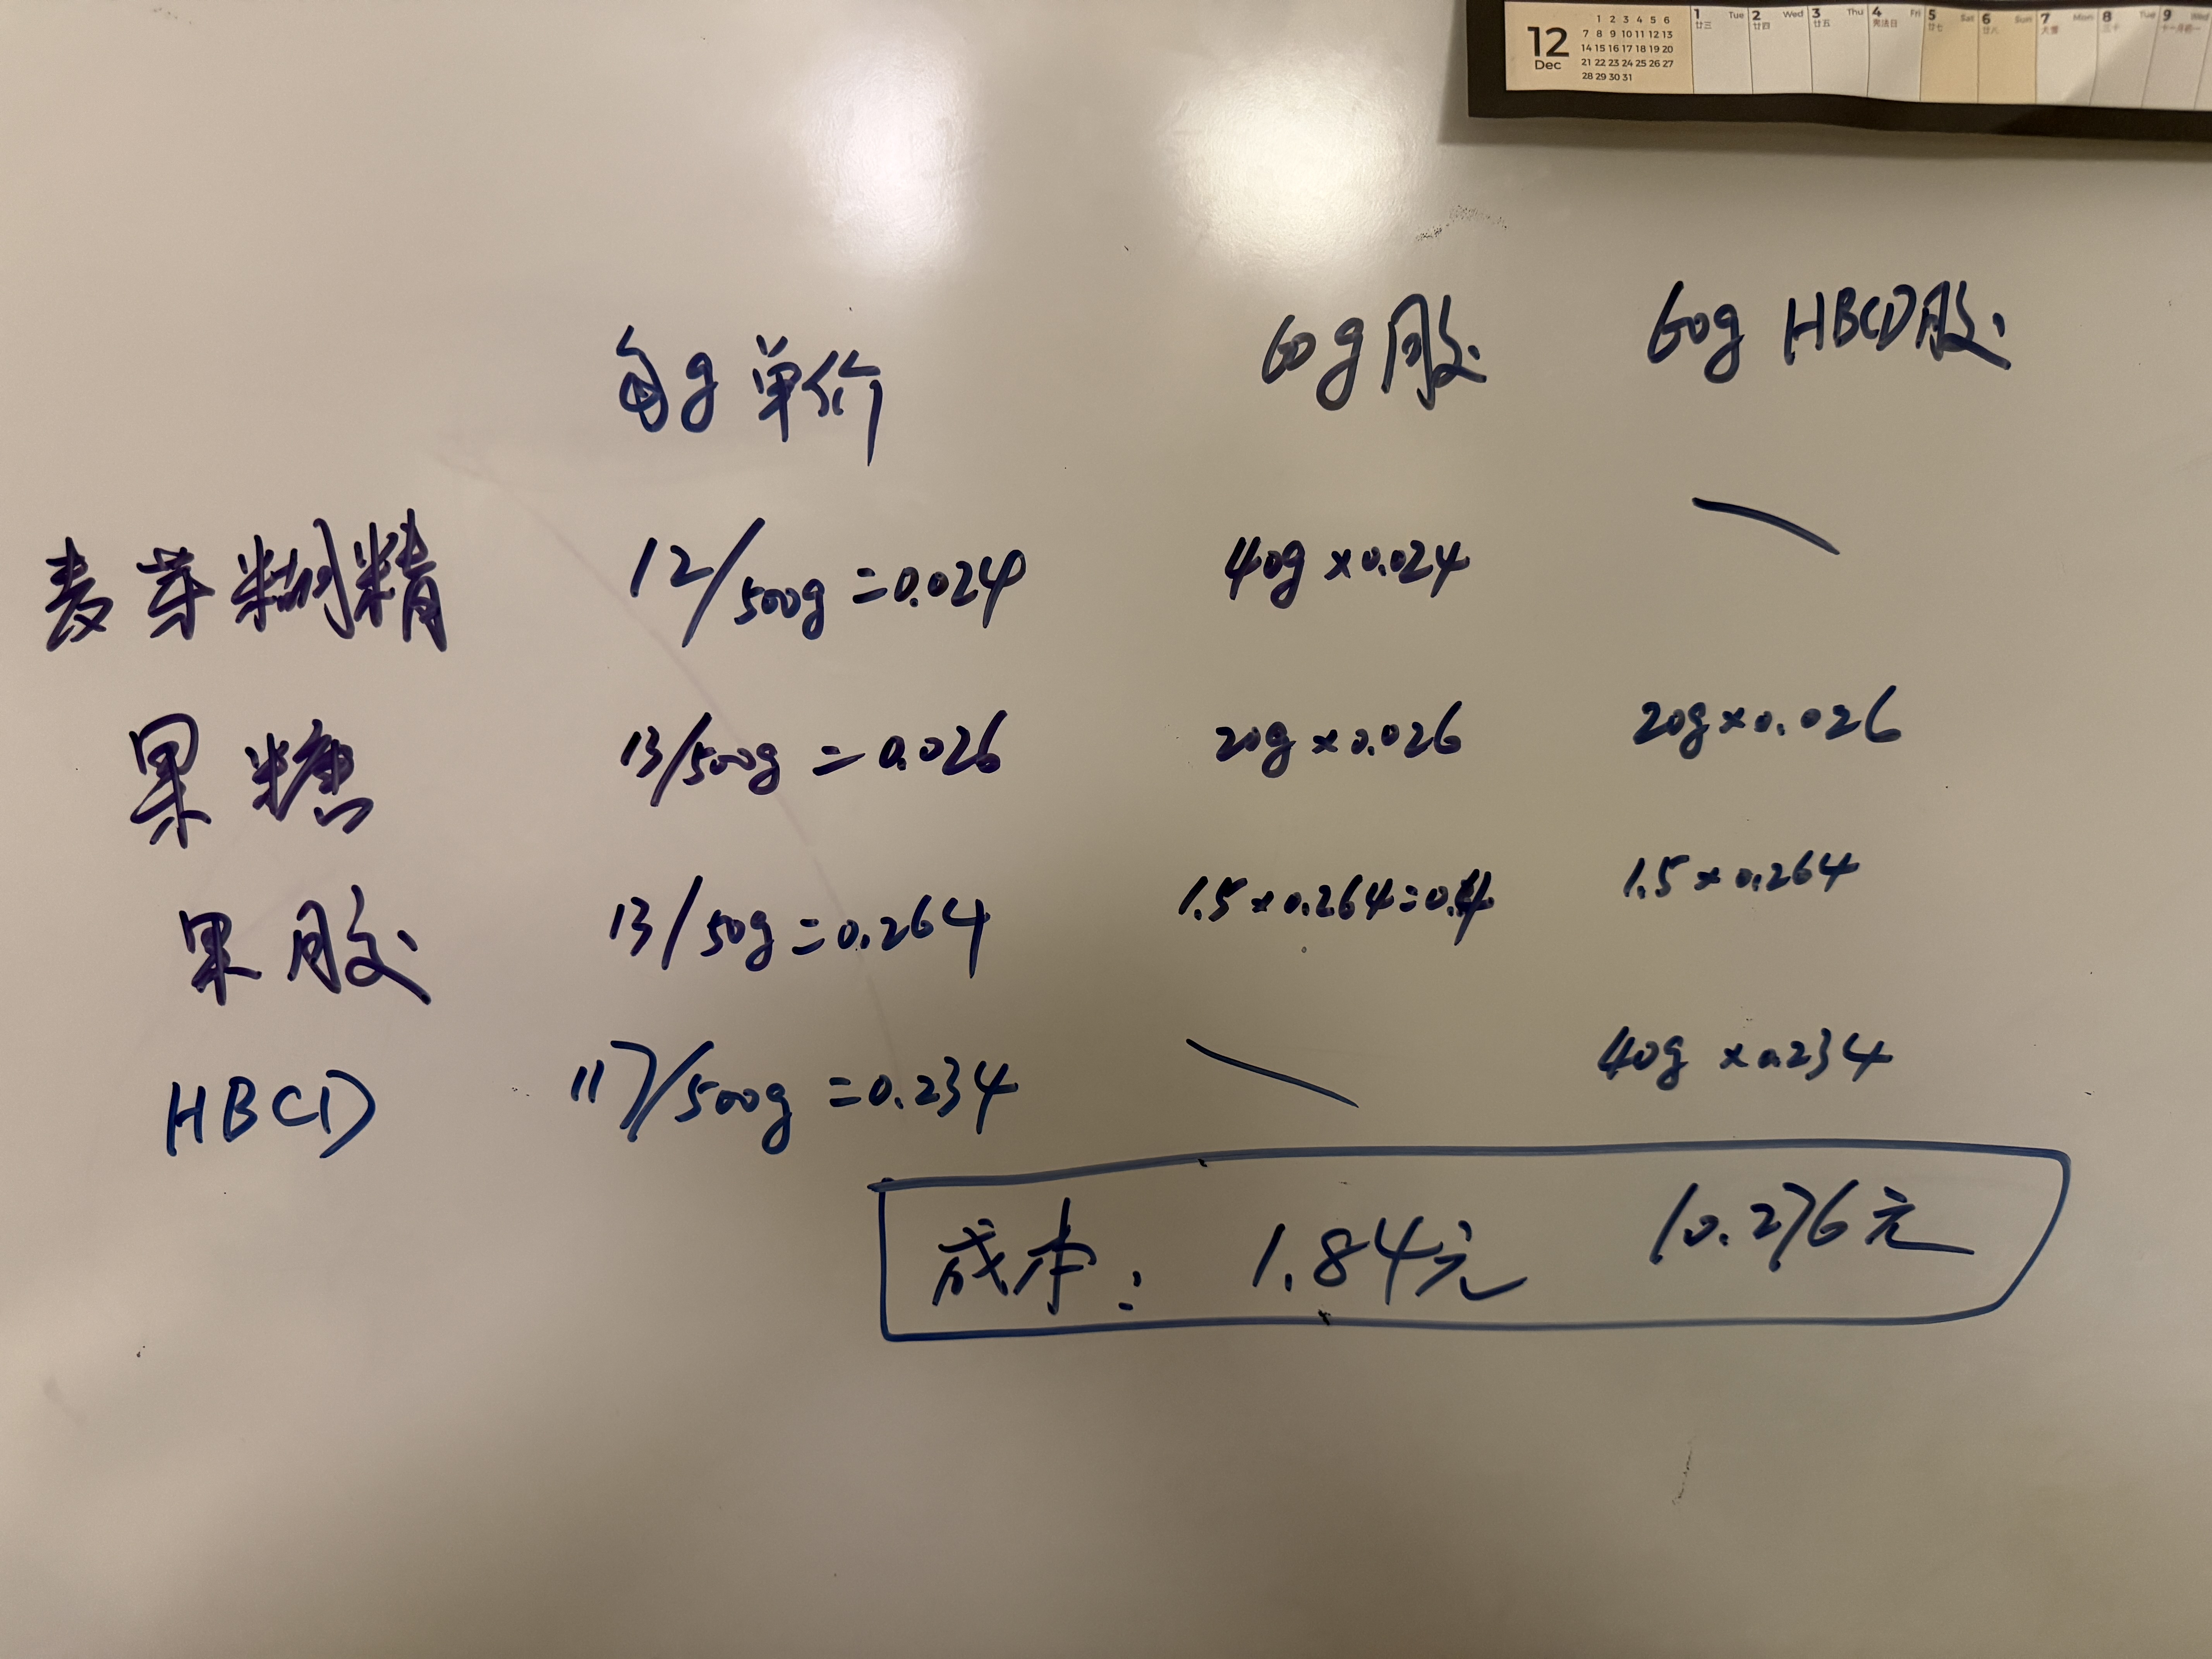 12 Dec
1 2 3 4 5 6
7 8 9 10 11 12 13
14 15 16 17 18 19 20
21 22 23 24 25 26 27
28 29 30 31
1 Tue 廿三
2 Wed 廿四
3 Thu 廿五
4 Fri 宪法日
5 Sat 廿七
6 Sun 廿八
7 Mon 大雪
8 Tue 三十
9 Wed 十一月初一
每g单价 60g胶 60g HBCD胶
麦芽糊精 12/500g=0.024 40g×0.024
果糖 13/500g=0.026 20g×0.026 20g×0.026
果胶 13/50g=0.264 1.5×0.264=0.4 1.5×0.264
HBCD 117/500g=0.234 40g×0.234
成本: 1.84元 10.276元